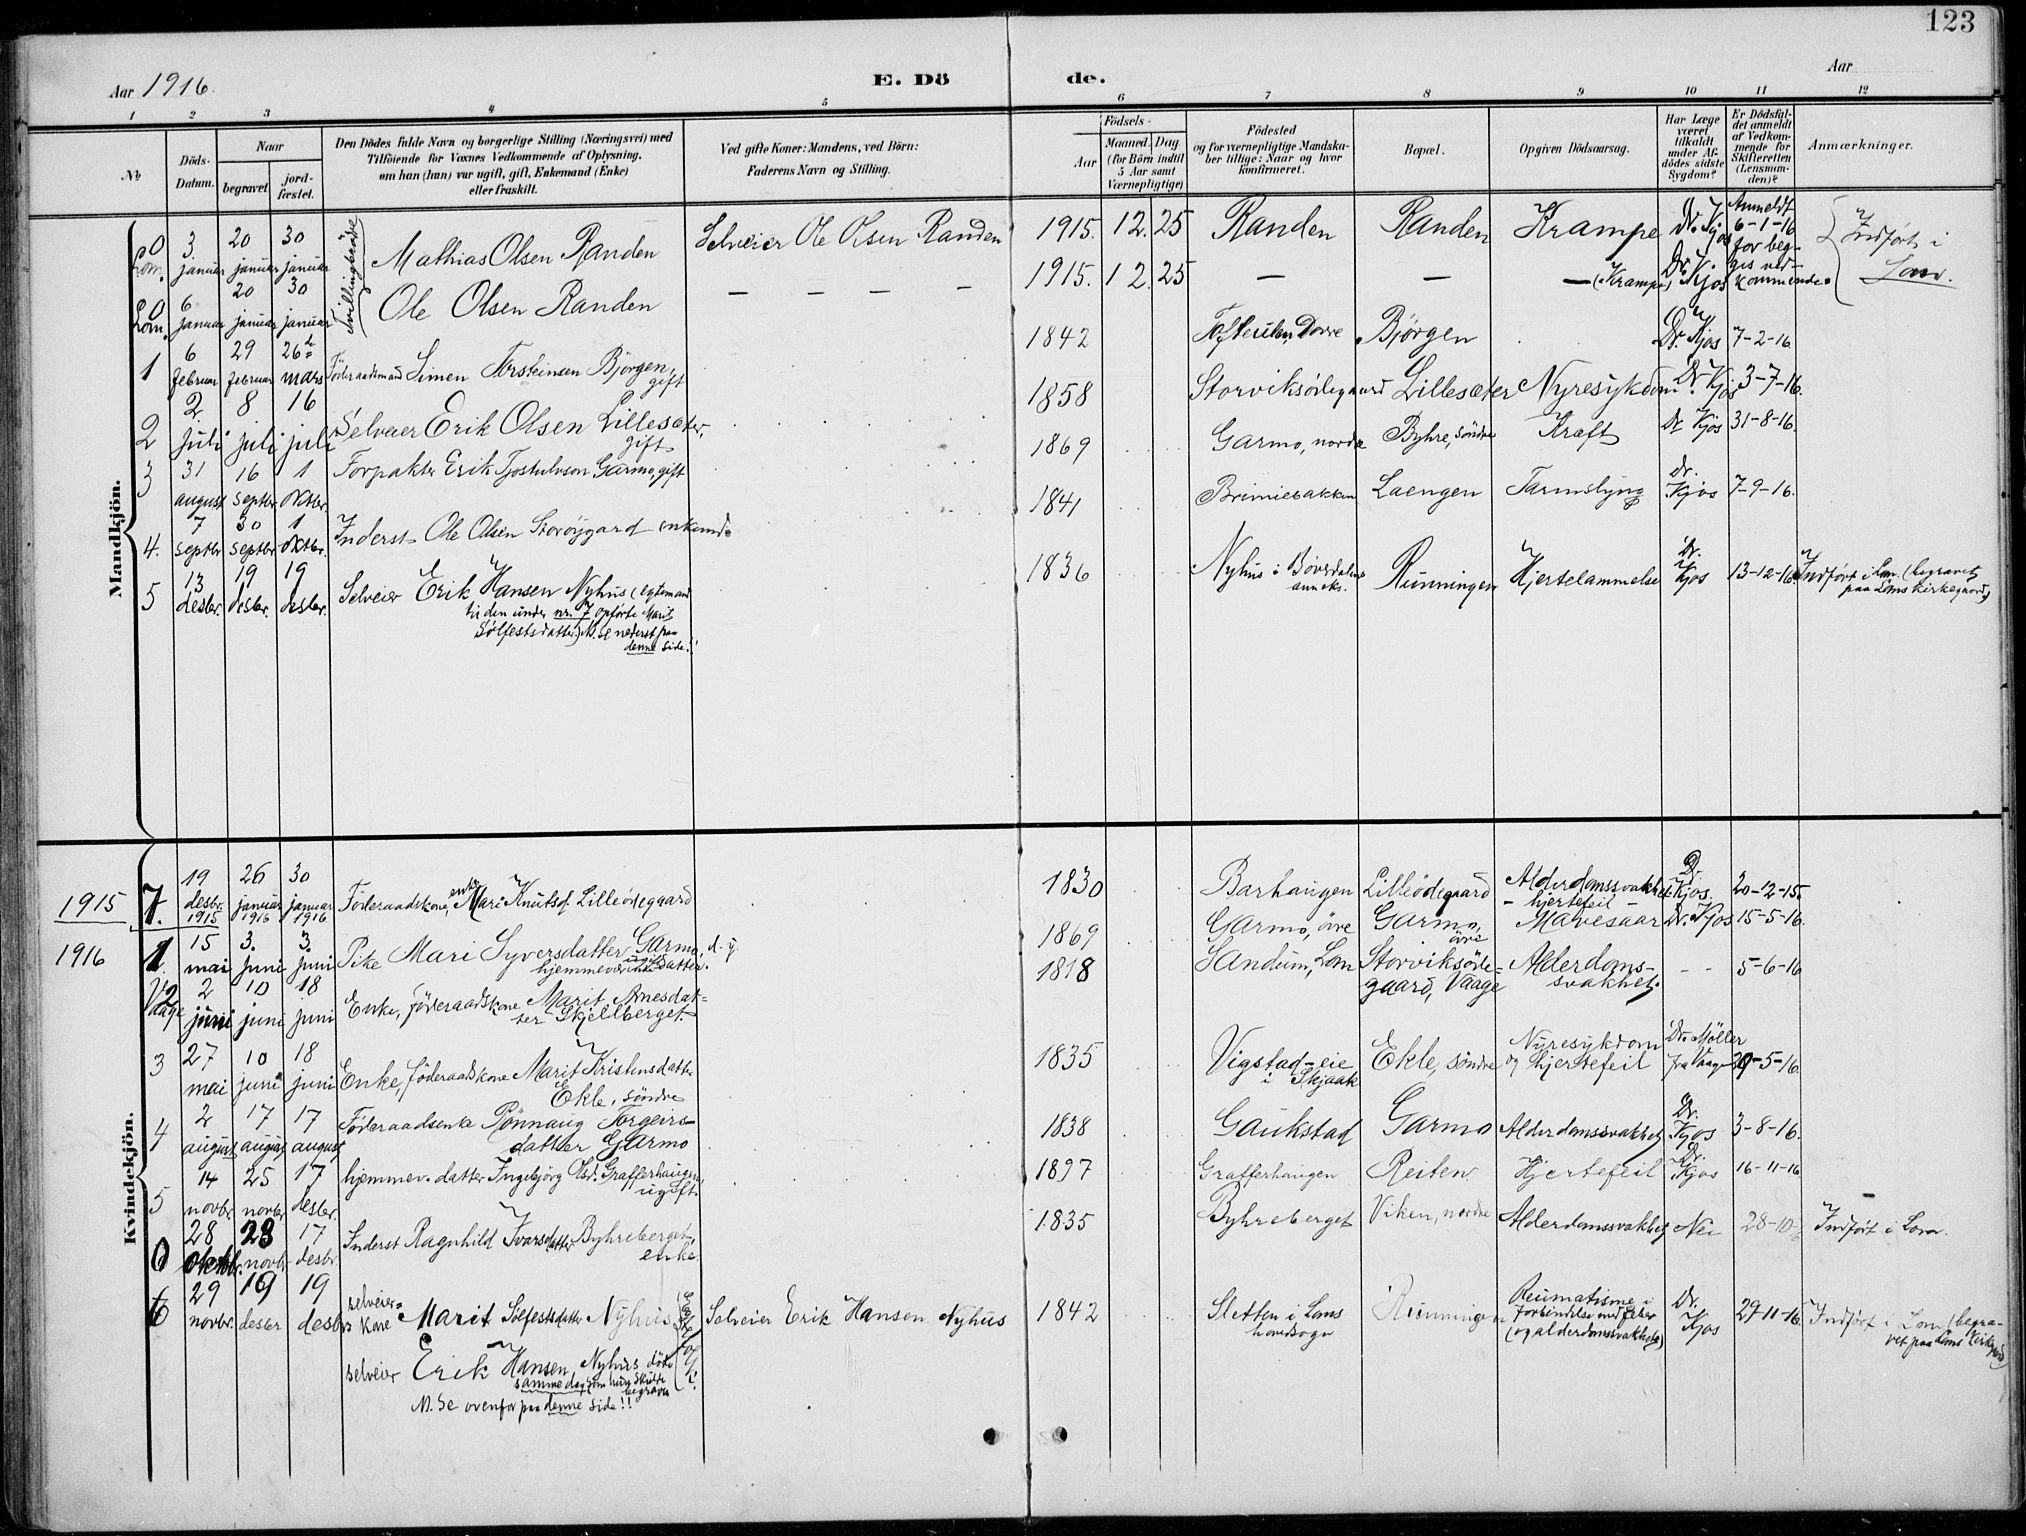 123
Aar 1916.
E. Dö de.
Aar
1 2 3 4 5 6 7 8 9 10 11 12
No
Döds-Datum.
Naar
begravet
jord-fæstet.
Den Dödes fulde Navn og borgerlige Stilling (Næringsvei) med
Tilföiende for Voxnes Vedkommende af Oplysning,
om han (hun) var ugift, gift, Enkemand (Enke)
eller fraskilt.
Ved gifte Koner: Mandens, ved Börn:
Faderens Navn og Stilling.
Födsels-
Aar
Maaned. Dag
(for Börn indtil
5 Aar samt
Værnepligtige)
Födested
og for værnepligtige Mandska-
ber tillige: Naar og hvor
konfirmeret.
Bopæl.
Opgiven Dödsaarsag.
Har Læge
været
tilkaldt
under Af-
dödes sidste
Sygdom?
Er Dödsfal-
det anmeldt
af Vedkom-
mende for
Skifteretten
(Lensman-
den)?
Anmærkninger.
Mandkjön.
0 Lom. 3. januar 20 januar 30 januar Tvillingbrødre Mathias Olsen Randen Selveier Ole Olsen Randen 1915. 12. 25 Randen Randen Krampe Dr. Kjos Anmeldt 6-1-16 for beg- Indført i Lom.
0 Lom. 6 januar 20 januar 30 januar Ole Olsen Randen — — — — 1915. 12. 25 — — — (Krampe) Dr. Kjos ges ved-kommende.
1 6 februar 29 februar 26 mars Föderaadsmand Simen Torsteinsen Björgen, gift 1842 Dovre Bjørgen Dr. Kjos 7-2-16.
2 2 juli 8 juli 16 juli Selveier Erik Olsen Lillesæter, gift 1858 Storviksödegaard Lillesæter Nyresykdom Dr. Kjos 3-7-16.
3 31 august 16 septbr 1 oktbr. Forpakter Erik Tjostulvson Garmo, gift 1869 Garmo, nordre Byhre, søndre Kræft Dr Kjos 31-8-16.
4. 7 septbr 30 septbr 1 oktbr. Inderst Ole Olsen Storöygard enkemd. 1841 Brimiebakken Laengen Tarmslyng Dr. Kjos 7-9-16.
5 13 desbr. 19 desbr. 19 desbr. Selveier Erik Hansen Nyhus (egtemand
til den under nr. 7 opførte Marit
Sölfestsdatter.) N. Se nederst paa
denne side!!
1836 Nyhus i Bøverdalens anneks. Runningen Hjertelammelse Dr. Kjos 13-12-16. Indført i Lom. (begravet
paa Loms kirkegaard)
Kvindekjön.
1915 7. 19 desbr. 1915 26 januar 1916 30 januar 1916 Föderaadskone, enke Mari Knutsd. Lilleödegaard 1830 Barhaugen Lilleödegaard Alderdomssvakhet - hjertefeil - Dr. Kjos. 20-12-15.
1916 1. 15 mai 3. juni 3. juni Pike Mari Syversdatter Garmo, d. y. ugift
hjemmeværende datter.
1869 Garmo, övre Garmo, övre Mavesaar Dr. Kjos 15-5-16.
2 Vaage 2 juni 10 juni 18 juni Enke, föderaadskone Marit Arnesdat-
ter Skjellberget.
1818 Sandum, Lom Storviksöde-gaard, Vaage Alderdoms-svakhet. - - 5-6-16
3 27 mai 10 juni 18 juni Enke, föderaadskone Marit Kristensdatter
Ekle, söndre
1835 Vigstad-eie i Skjaak Ekle, søndre Nyresykdom og hjertefeil Dr. Møller fra Vaage 29-5-16.
4 2 august 17 august 17 august Föderaadsenke Rönnaug Torgeirs-
datter Garmo
1838 Gaukstad Garmo Alderdomssvakhet Dr. Kjos 3-8-16.
5 14 novbr. 25 novbr. 17 desbr. hjemmev. datter Ingebjörg Olsd. Grafferhaugen,
ugift
1897 Grafferhaugen Reiten Hjertefeil Dr. Kjos 16-11-16
0 28 oktbr. 23 novbr. 17 desbr. Inderst Ragnhild Ivarsdatter Byhreberget,
enke.
1835 Byhreberget Viken, nordre Alderdomssvakhet Nei 28-10- Indført i Lom.
6 29 novbr. 19 desbr 19 desbr. selveier-s kone Marit Solfestsdatter Nyhus Selveier Erik Hansen Nyhus 1842 Sletten i Loms hovedsogn Runningen Reumatisme i
forbindelse med feber
(og alderdomssvakhet) Dr. Kjos 29-11-16. Indført i Lom (begra-
vet paa Loms kirkegaard)
selveier Erik Hansen Nyhus döde
samme dag som hun skulde
begraves
N. Se ovenfor paa denne side!!